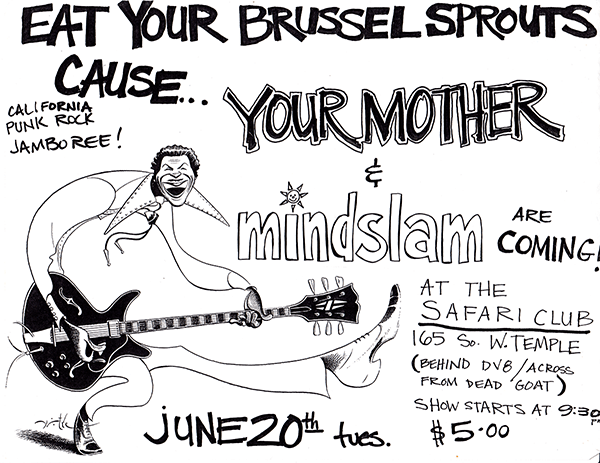 EAT YOUR BRUSSEL SPROUTS
CAUSE...
CALIFORNIA
PUNK ROCK
JAMBOREE!
YOUR MOTHER
&
mindslam
ARE
COMING!
AT THE
SAFARI CLUB
165 So. W. TEMPLE
(BEHIND DV8/ACROSS
FROM DEAD GOAT)
SHOW STARTS AT 9:30
$5.00
JUNE 20th tues.